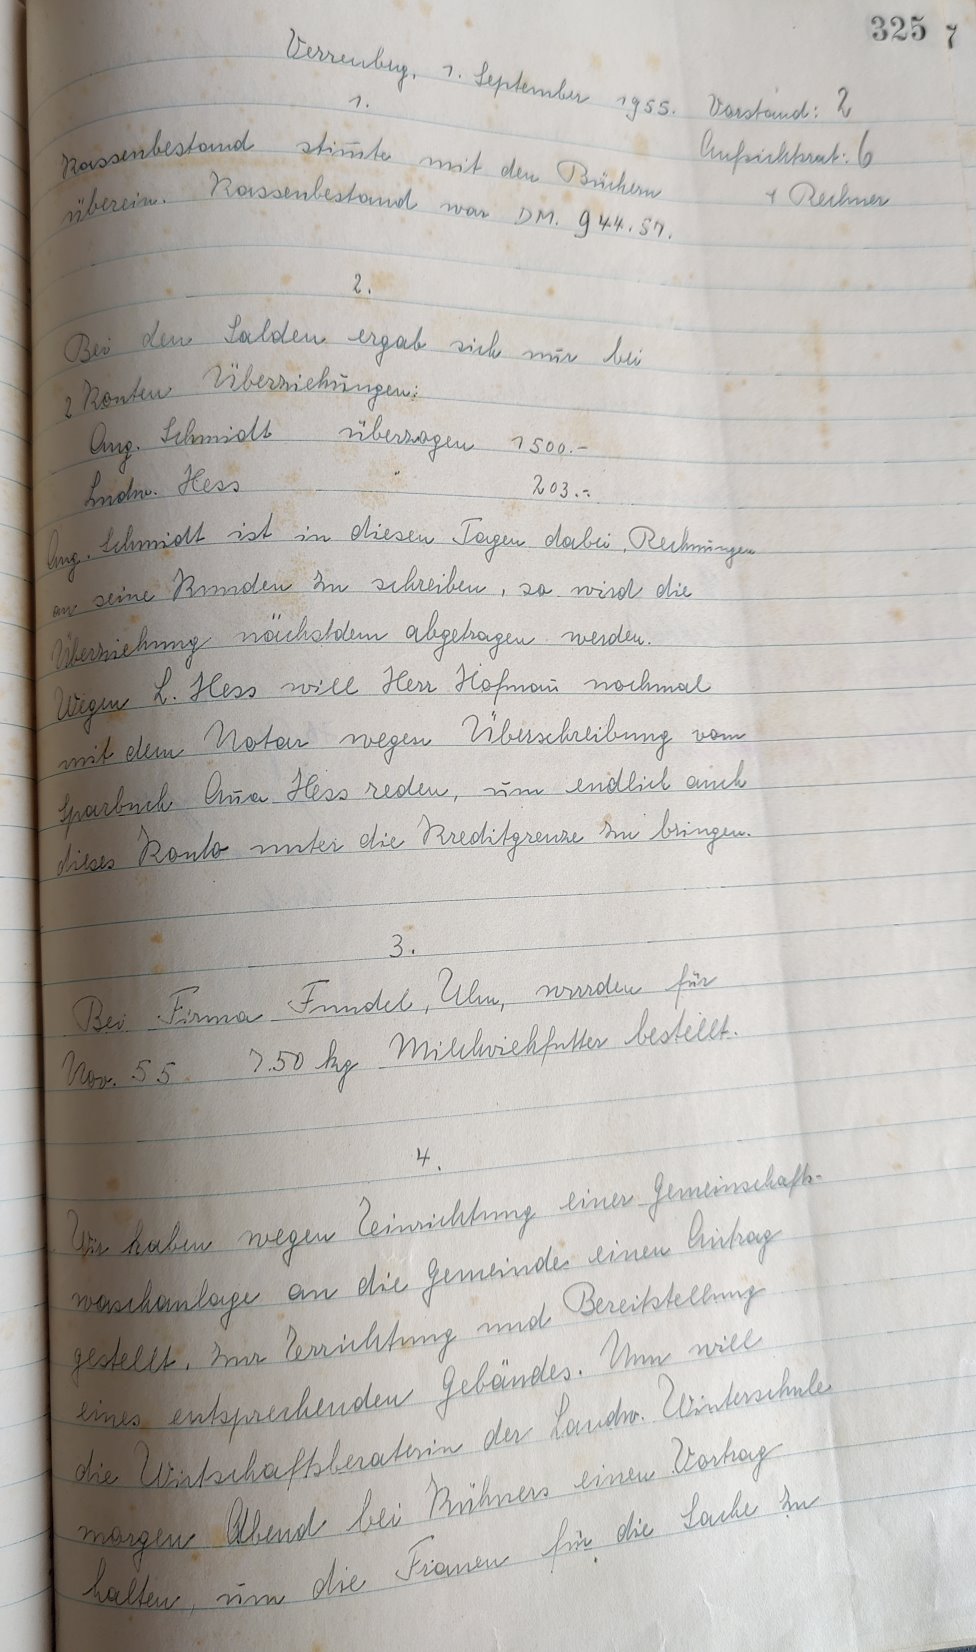 325 7
Verrenberg, 1. September 1955. Vorstand: 2
1. Aufsichtsrat: 6
+ Rechner
Kassenbestand stim̅te mit den Büchern
überein. Kassenbestand war DM. 944.57.
2.
Bei den Salden ergab sich nur bei
2 Konten Überziehungen:
Aug. Schmidt überzogen 1500.-
Ludw. Hess " 203.-
Aug. Schmidt ist in diesen Tagen dabei, Rechnungen
an seine Kunden zu schreiben, so wird die
Überziehung nächstdem abgetragen werden.
Wegen L. Hess will Herr Hofmañ nochmal
mit dem Notar wegen Überschreibung vom
Sparbuch Aña Hess reden, um endlich auch
dieses Konto unter die Kreditgrenze zu bringen.
3.
Bei Firma Fundel, Ulm, wurden für
Nov. 55 750 kg Milchviehfutter bestellt.
4.
Wir haben wegen Einrichtung einer Gemeinschafts-
waschanlage an die Gemeinde einen Antrag
gestellt, zur Errichtung und Bereitstellung
eines entsprechenden Gebäudes. Nun will
die Wirtschaftsberaterin der Landw. Winterschule
morgen Abend bei Kühners einen Vortrag
halten, um die Frauen für die Sache zu